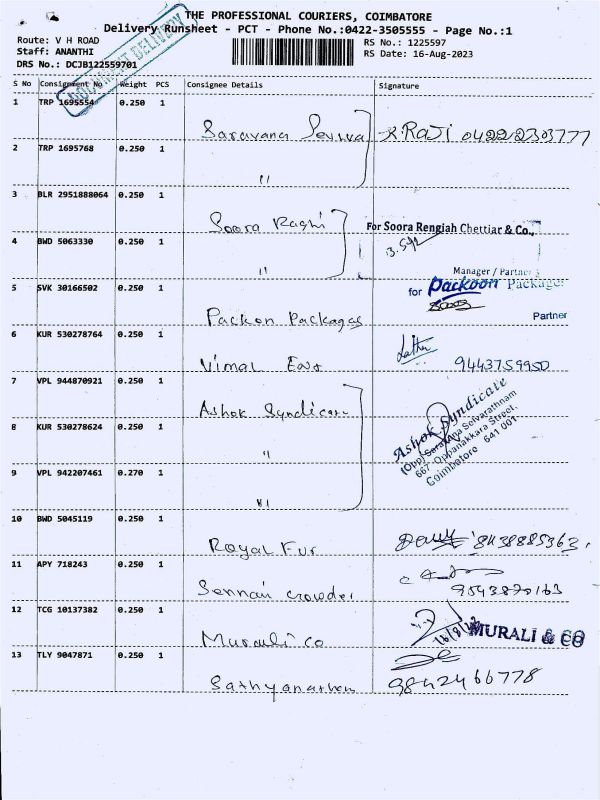 THE PROFESSIONAL COURIERS, COIMBATORE
Delivery Runsheet - PCT - Phone No.:0422-3505555 - Page No.:1
Route: V H ROAD
Staff: ANANTHI
DRS No.: DCJB122559701
RS No.: 1225597
RS Date: 16-Aug-2023
DOCUMENT DELIVERY
S No Consignment No Weight PCS Consignee Details Signature
1 TRP 1695554 0.250 1
Saravana Selvva R.RAJI 0422 2303777
2 TRP 1695768 0.250 1
"
3 BLR 2951888064 0.250 1
Soora Raghi For Soora Rengiah Chettiar & Co.,
4 BWD 5063330 0.250 1
"
Manager / Partner
5 SVK 30166502 0.250 1
for Packoon Packages
Packon Packages
Partner
6 KUR 530278764 0.250 1
Vimal Latha 9443759950
7 VPL 944870921 0.250 1
Ashok Syndicate
8 KUR 530278624 0.250 1
"
Ashok Syndicate
(Opp) Saradha Selvarathnam
667, Oppanakkara Street,
Coimbatore 641 001
9 VPL 942207461 0.270 1
"
10 BWD 5045119 0.250 1
Royal Fur 8438885363.
11 APY 718243 0.250 1
Sennai Crowder 9543870163
12 TCG 10137382 0.250 1
Murali Co 16/8/23 MURALI & CO
13 TLY 9047871 0.250 1
9842466778